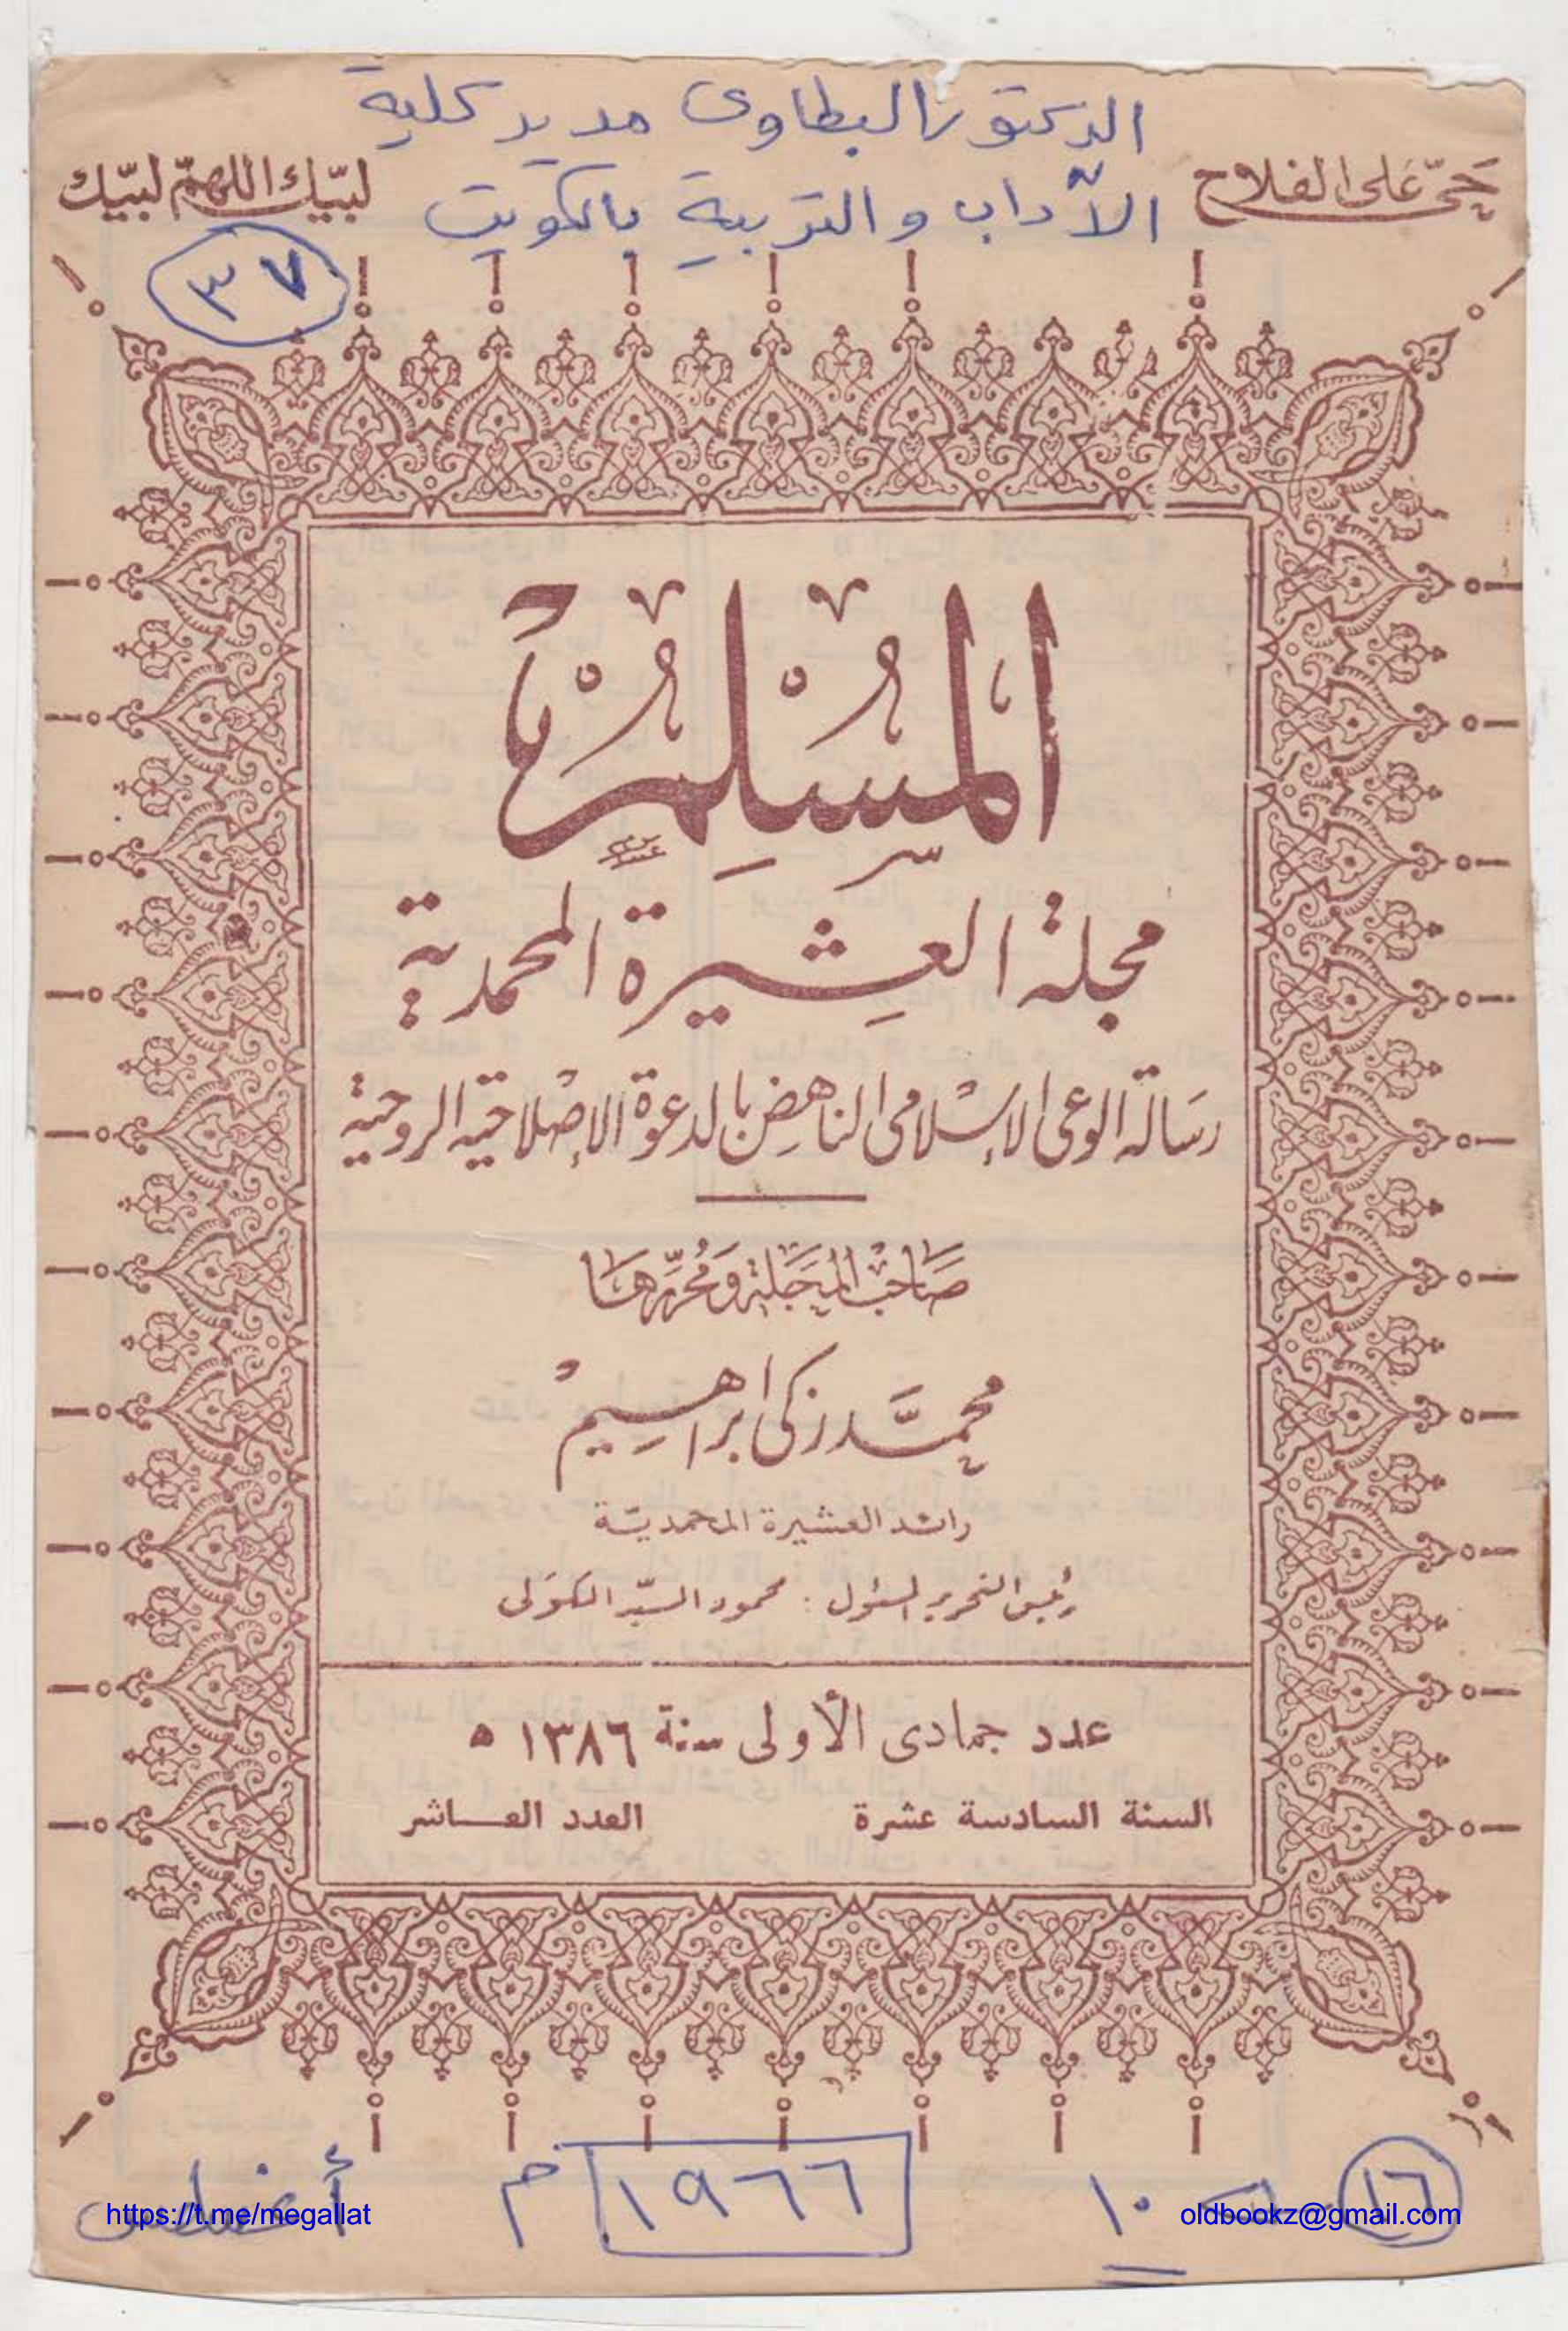 الدكتور البطاوى مدير كلية
حَىّ عَلى الفلاح
لبّيك اللهمّ لبيّك
الآداب والتربية بالكويت
٣٧
المُسْلِمُ
مجلة العشيرة المحمدية
رسَالة الوعى الإسْلامى الناهِض بالدعوة الإصْلاحية الروحية
صَاحبُ المَجَلة وَمُحَرّرهَا
محمَّد زكى ابراهيم
رائد العشيرة المحمديّة
رئيس التحرير المسئول : محمود السيّد الكوَلى
عدد جمادى الأولى سنة ١٣٨٦ ه
السنة السادسة عشرة
العدد العـــاشر
١٦
١٠
١٩٦٦ م
أغسطس
https://t.me/megallat
oldbookz@gmail.com